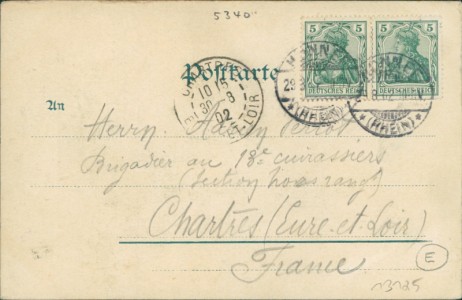 5340
5 5
5 5
DEUTSCHES REICH DEUTSCHES REICH
(RHEIN) (RHEIN)
Postkarte
CHARTRES
10 15
30 8
02
EURE ET LOIR
An
Herrn
Brigadier au 18e cuirassiers
(section hors rang)
Chartres (Eure-et-Loir)
France
E